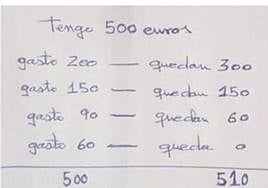 Tengo 500 euros
gasto 200 — quedan 300
gasto 150 — quedan 150
gasto 90 — quedan 60
gasto 60 — queda 0
500 510